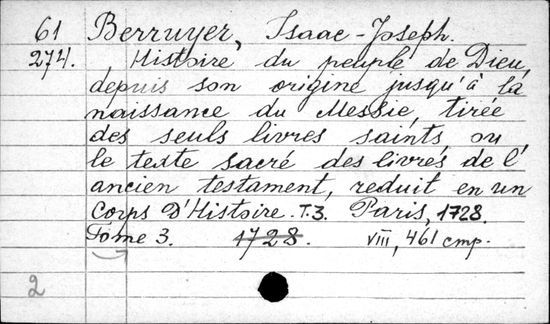 61 Berruyer, Isaac-Joseph.
274. Histoire du peuple de Dieu,
depuis son origine jusqu'à la
naissance du Messie, tirée
des seuls livres saints ou
le texte sacré des livres de l'
ancien testament, reduit en un
Corps D'Histoire. T.3. Paris, 1728.
Tome 3. 1728. VIII, 461 cmp.
2